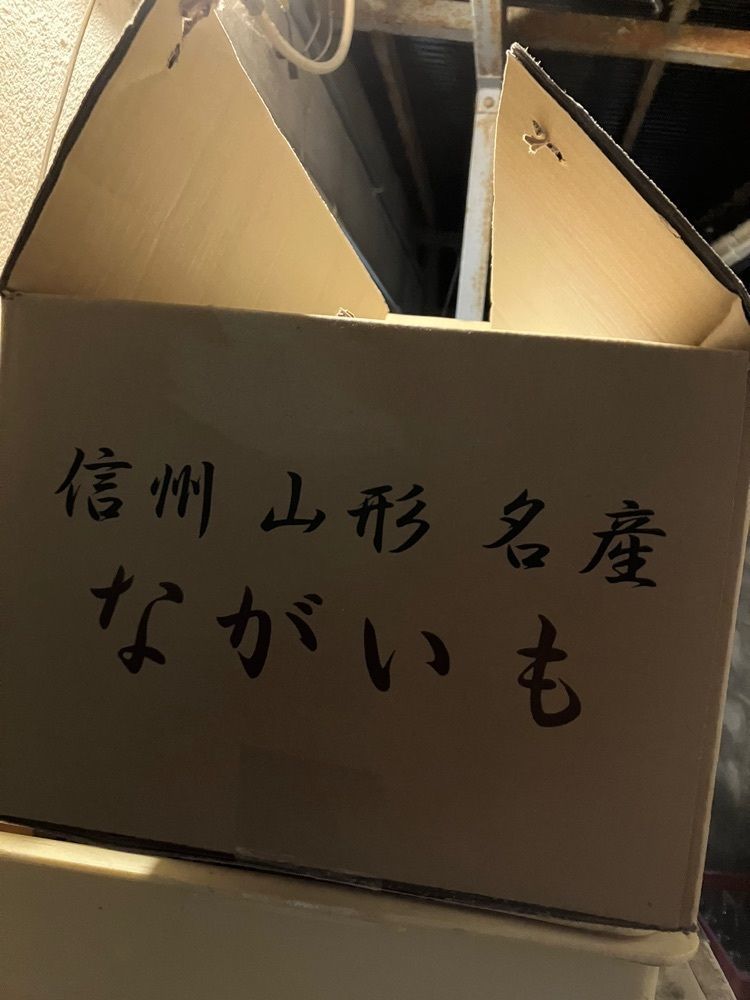 信州 山形 名産
ながいも